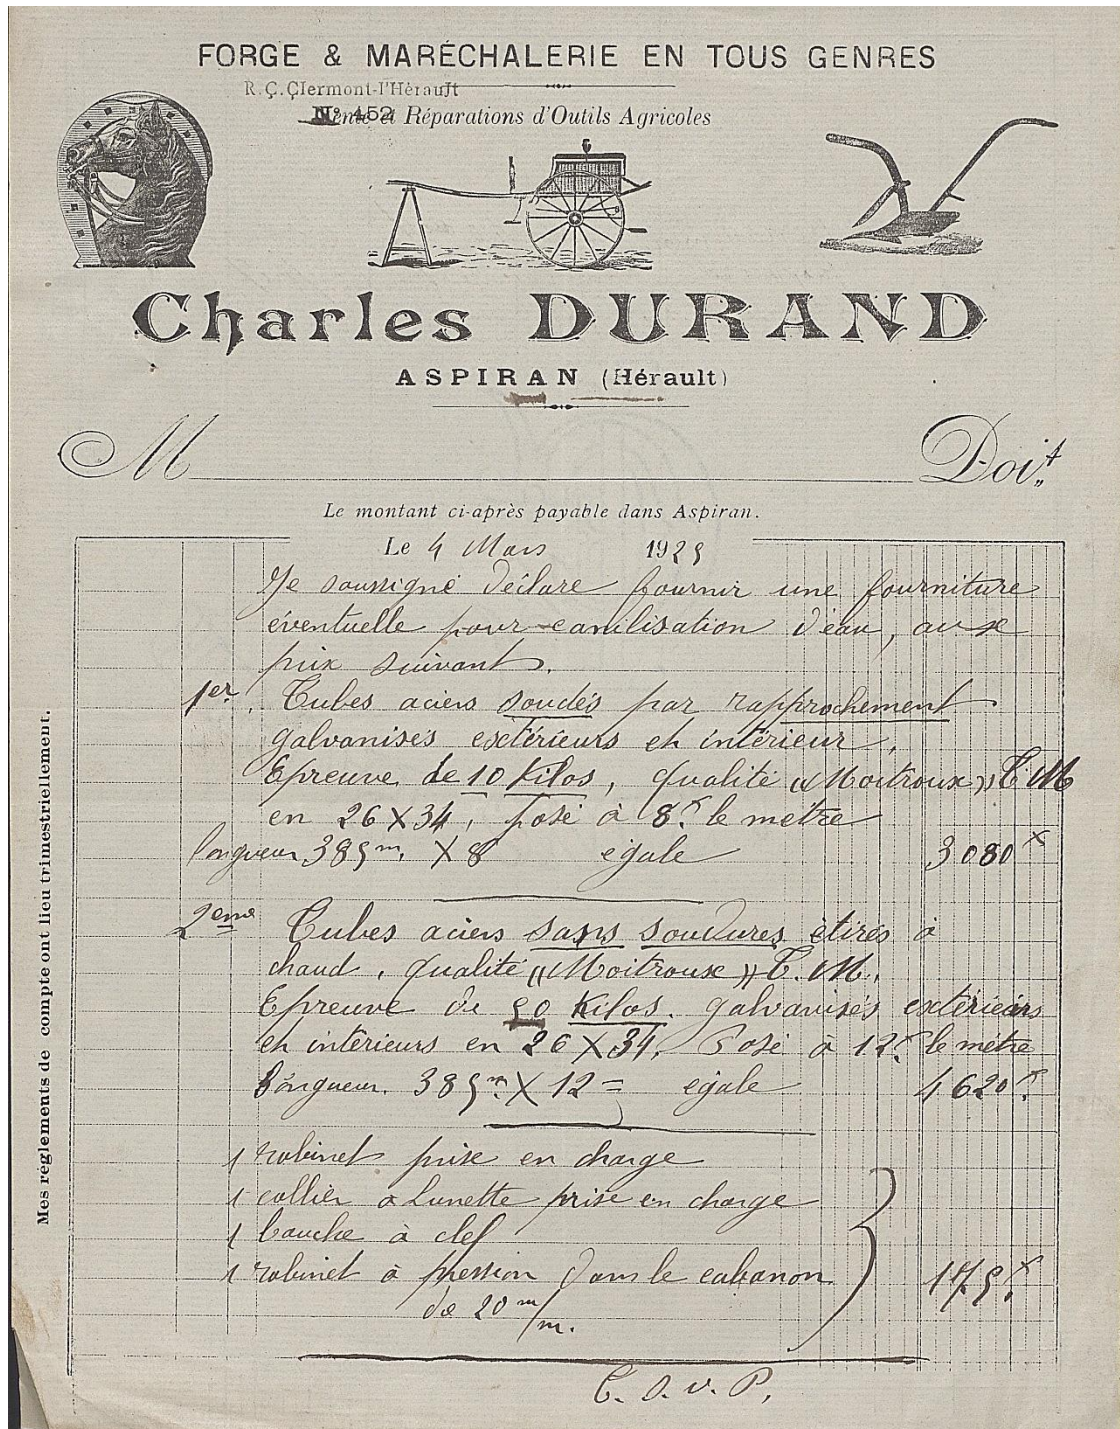 FORGE & MARÉCHALERIE EN TOUS GENRES
R.C. Clermont-l'Hérault
N° 452
Vente et Réparations d'Outils Agricoles
Charles DURAND
ASPIRAN (Hérault)
M Doit
Le montant ci-après payable dans Aspiran.
Le 4 Mars 1925
Je soussigné déclare fournir une fourniture
éventuelle pour canilisation d'eau, aux
prix suivant.
1er. Tubes aciers soudés par rapprochement
galvanisés extérieurs et intérieur,
Epreuve de 10 Kilos, qualité "Moitroux" T. M
en 26 X 34, posé à 8f. le mètre
longueur 385m. X 8 égale 3080f
2eme Tubes aciers sans soudures étirés à
chaud, qualité "Moitroux" T. M.
Epreuve de 50 Kilos. galvanisés extérieurs
et intérieurs en 26 X 34. Posé à 12f. le mètre
Longueur. 385m. X 12 = égale 4620f.
1 robinet prise en charge
1 collier à Lunette prise en charge
1 bouche à clef
1 robinet à pression dans le cabanon
de 20 m/m. 175f.
T. S. V. P.
Mes réglements de compte ont lieu trimestriellement.